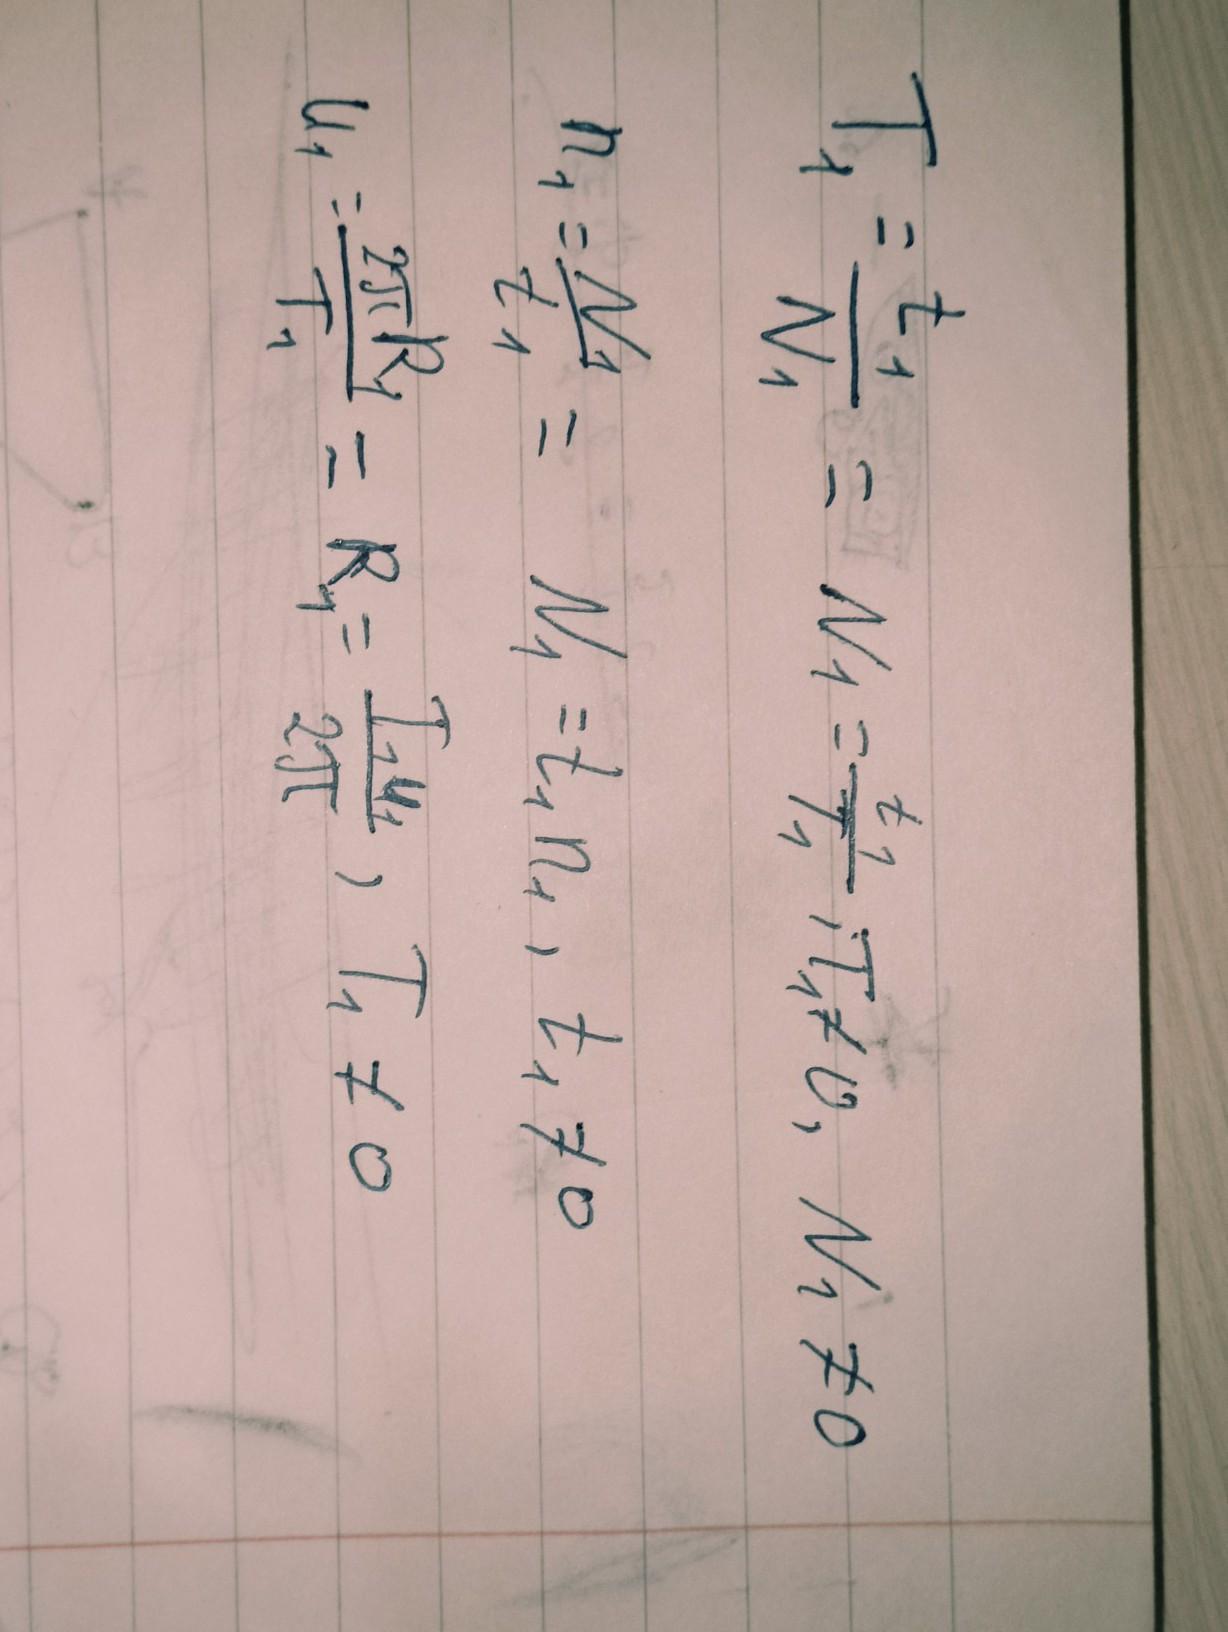 T₁ = t₁/N₁ = N₁ = t₁/T₁, T₁ ≠ 0, N₁ ≠ 0
n₁ = N₁/t₁ = N₁ = t₁n₁, t₁ ≠ 0
u₁ = 2πR₁/T₁ = R₁ = T₁u₁/2π, T₁ ≠ 0